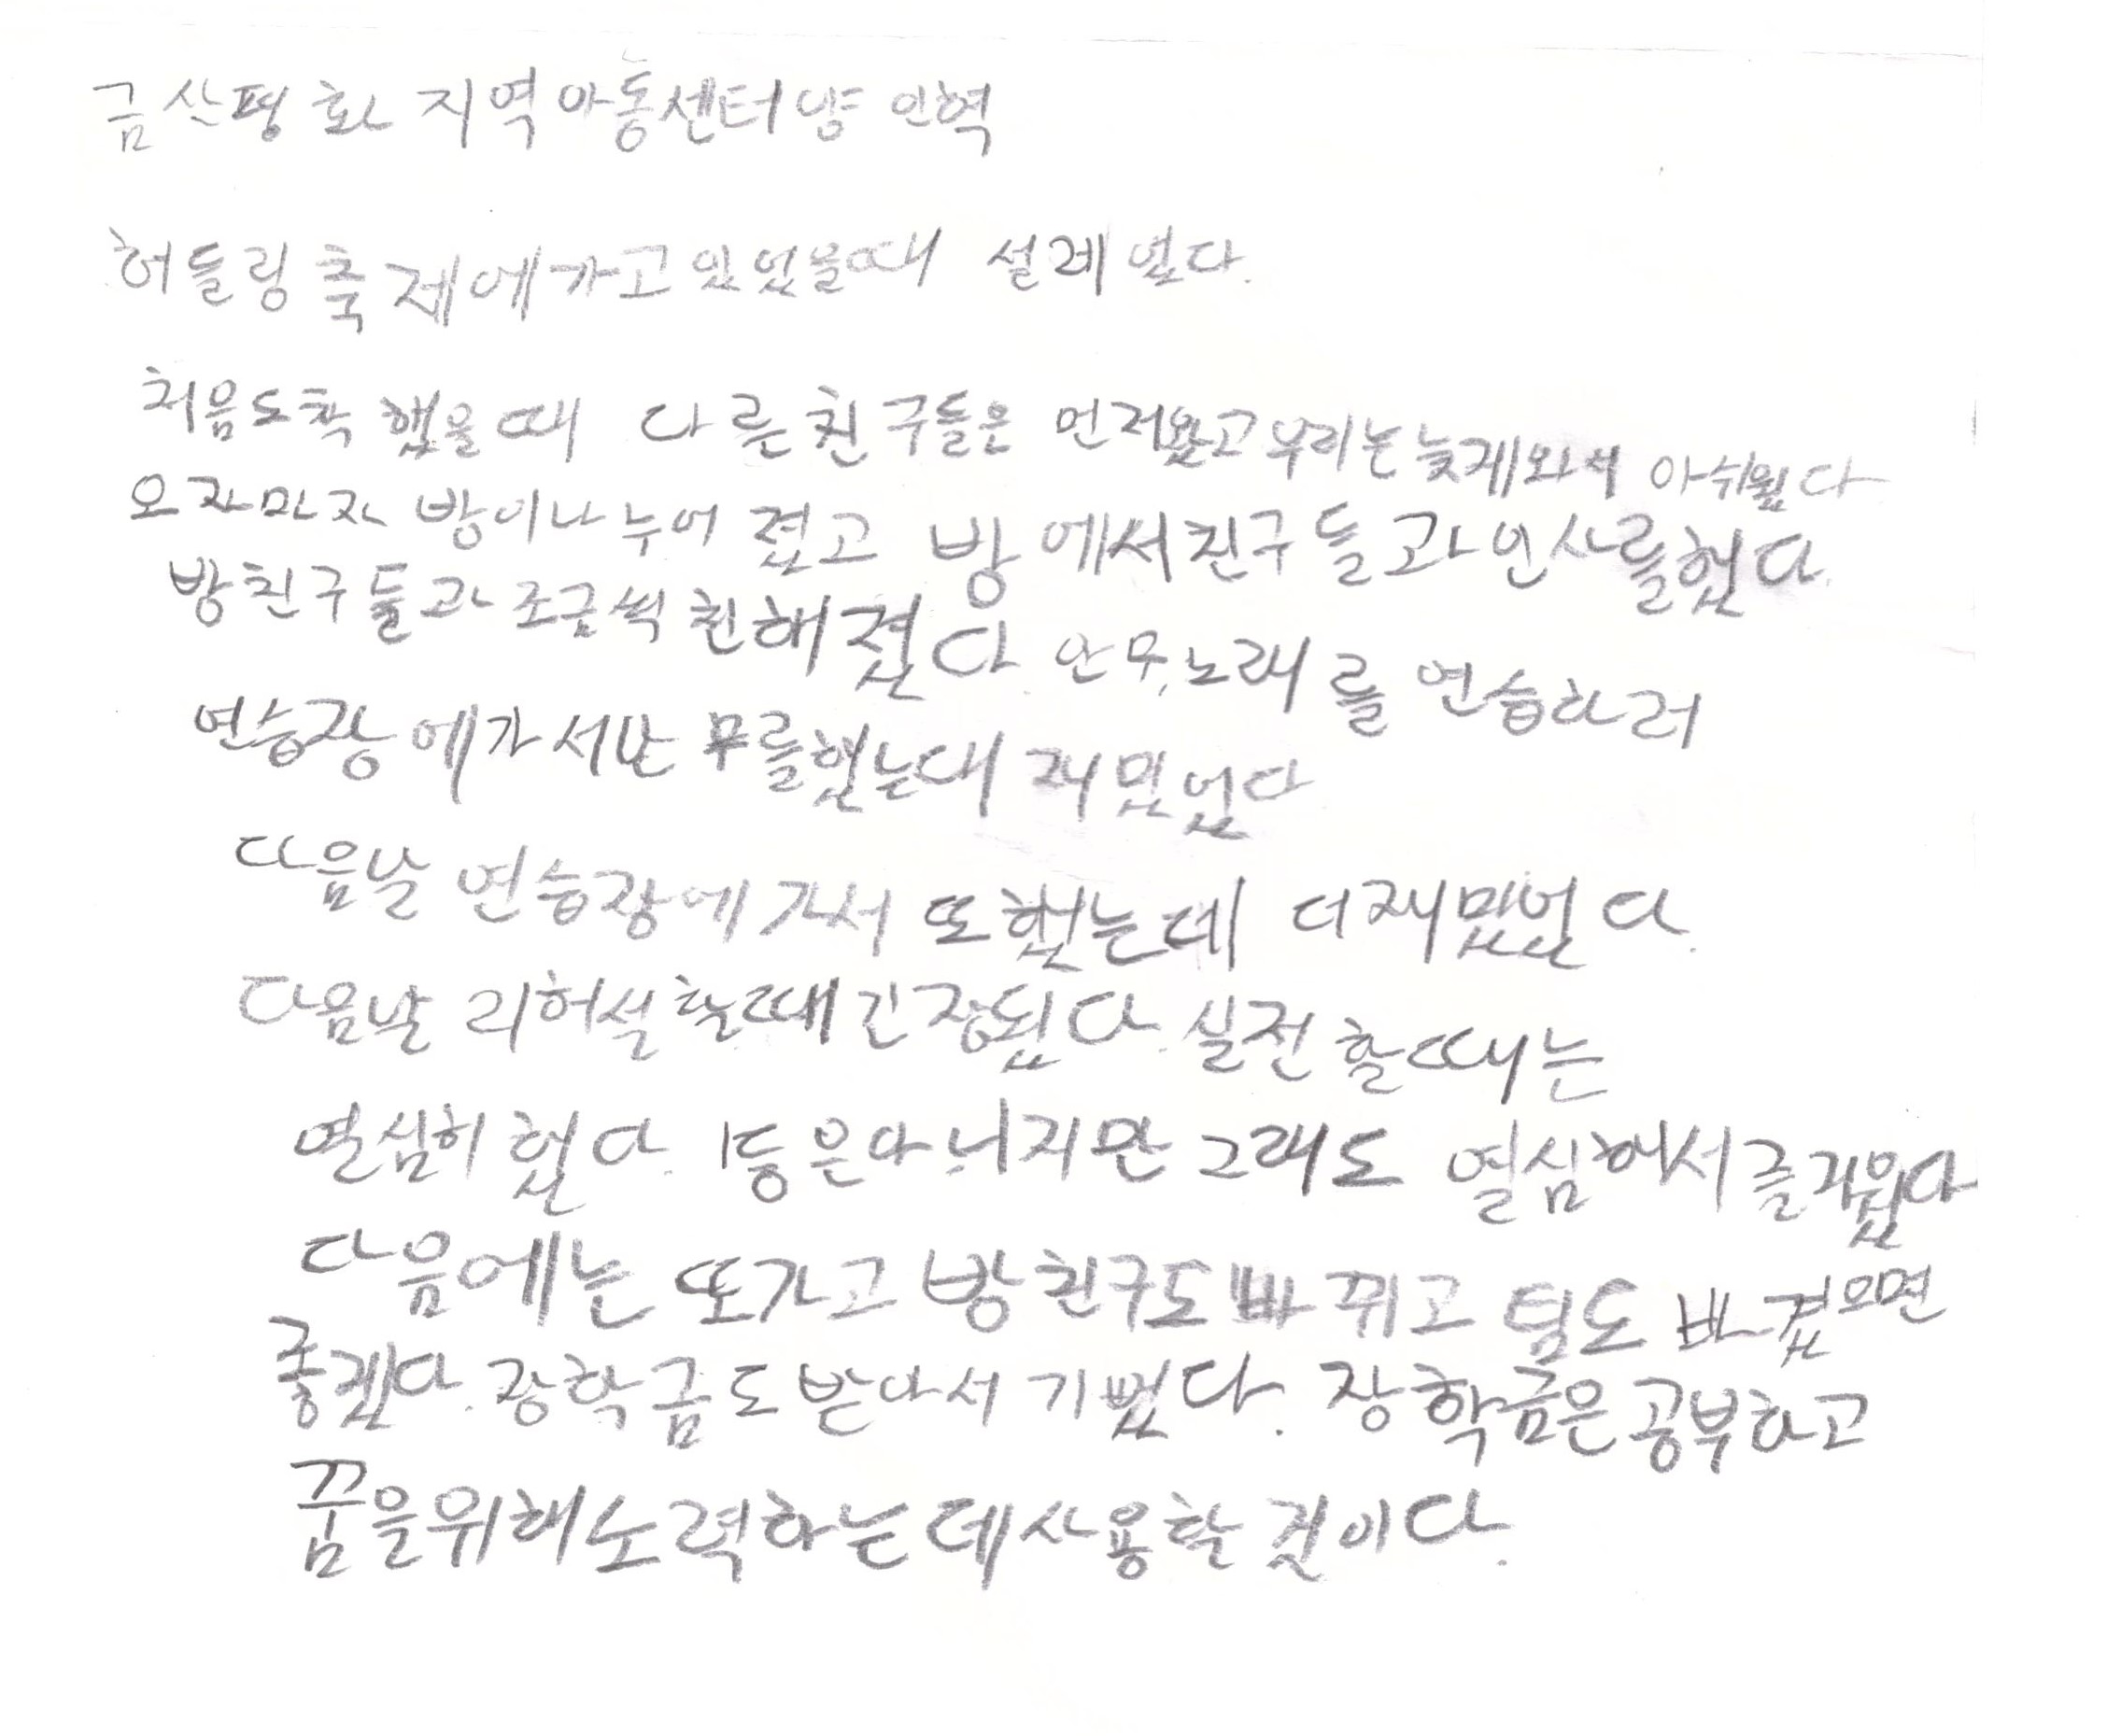 금산평화 지역아동센터 양인혁
허들링 축제에 가고 있었을때 설레였다.
처음 도착 했을 때 다른 친구들은 먼저왔고 우리는 늦게와서 아쉬웠다
오자마자 방이 나누어 졌고 방에서 친구들과 인사를 했다.
방친구들과 조금씩 친해졌다. 안무, 노래를 연습하러
연습장에 가서 안무를 했는대 재밌었다
다음날 연습장에 가서 또 했는데 더 재밌었다.
다음날 리허설 할때 긴장됬다. 실전 할때는
열심히 했다. 1등은 아니지만 그래도 열심해서 즐거웠다
다음에는 또 가고 방 친구도 바뀌고 팀도 바꼈으면
좋겠다. 장학금도 받아서 기뻤다. 장학금은 공부하고
꿈을 위해 노력하는데 사용할 것이다.